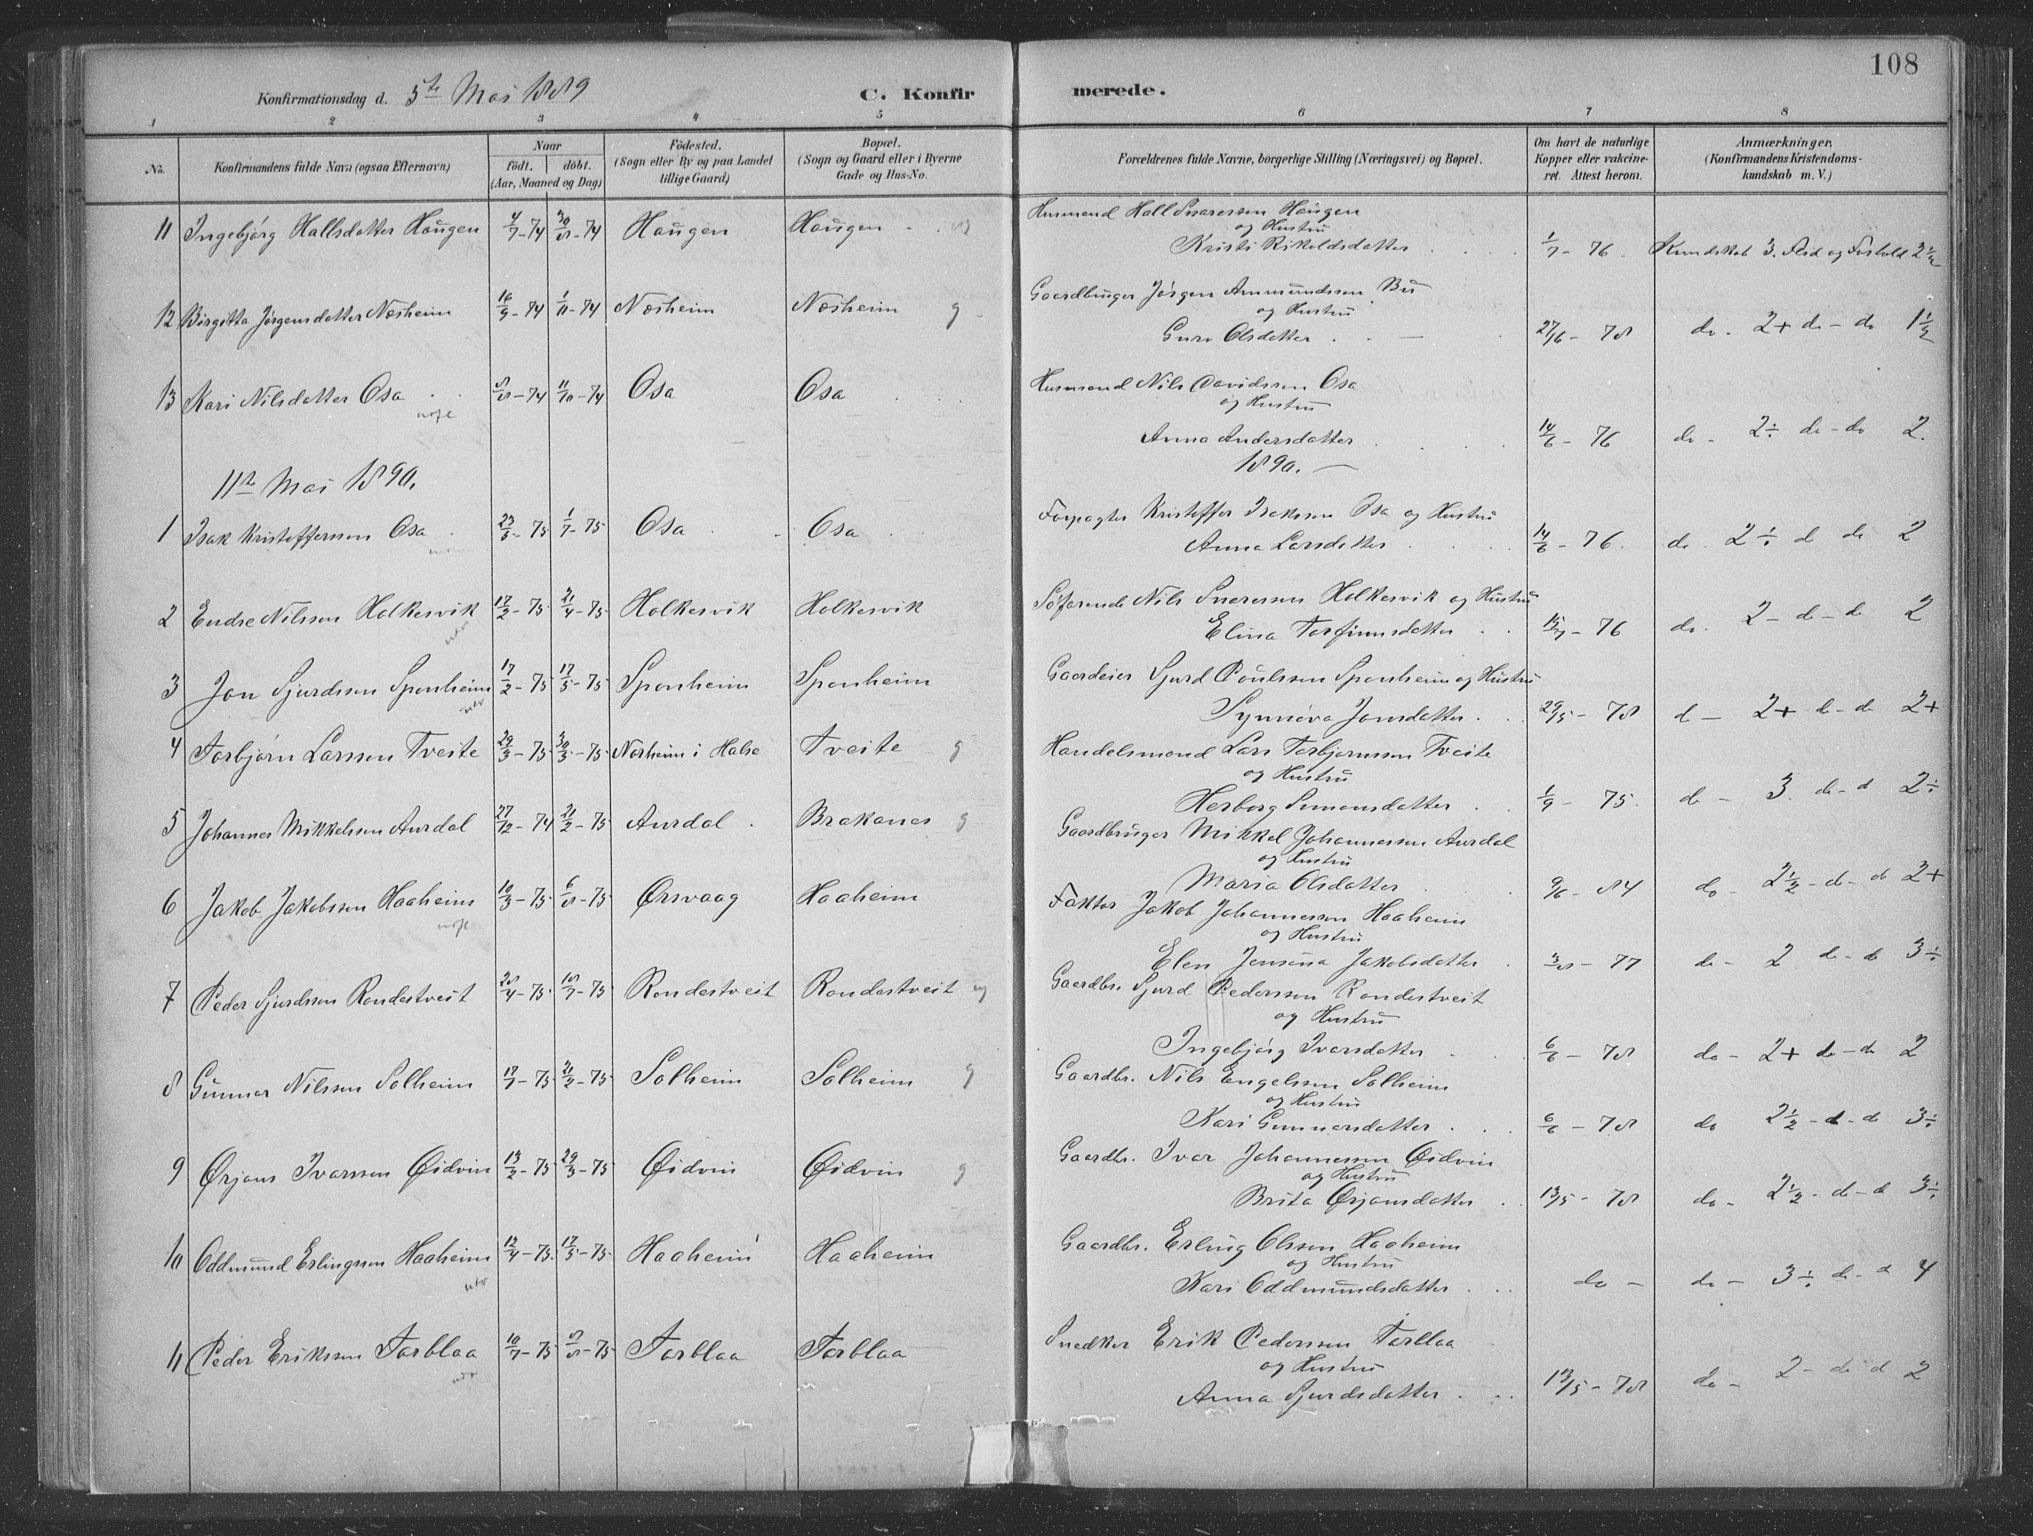 108
Konfirmationsdag d. 5te Mai 1889 C. Konfirmerede.
1 2 3 4 5 6 7 8
No. Konfirmandens fulde Navn (ogsaa Efternavn) Naar født. døbt. (Aar, Maaned og Dag) Fødested. (Sogn eller By og paa Landet tillige Gaard) Bopæl. (Sogn og Gaard eller i Byerne Gade og Hus-No. Forældrenes fulde Navne, borgerlige Stilling (Næringsvei) og Bopæl. Om havt de naturlige Kopper eller vakcineret. Attest herom. Anmærkninger, (Konfirmandens Kristendomskundskab m. V.)
11 Ingebjörg Hallsdatter Haugen 4/7-74 30/8-74 Haugen Haugen Husmand Hall Snaressen Haugen
og Hustru
Kristi Rikoldsdatter 1/7-76 Kundskab 3. Flid og Forhold 2 1/2
12 Birgitta Jørgensdatter Næsheim 16/9-74 1/11-74 Næsheim Næsheim g Gaardbruger Jørgen Ammundssen Bu
og Hustru
Guro Olsdatter 27/6-78 do- 2+ do-do 1 1/2
13 Kari Nilsdatter Osa 8/8-74 11/10-74 Osa Osa Husmand Nils Davidssen Osa
og Hustru
Anna Andersdatter 14/6-76 do- 2÷ do-do 2.
11te Mai 1890. 1890.
1 Isak Kristoffersen Osa 23/5-75 1/7-75 Osa Osa Forpagter Kristoffer Isakssen Osa og Hustru
Anna Larsdatter 14/6-76. do. 2÷ d do 2
2 Endre Nilssen Holkesvik 17/2-75 21/4-75 Holkesvik Holkesvik Söfarende Nils Snaressen Holkesvik og Hustru
Elina Torfinnsdatter 15/7-76 do. 2-do-do 2
3 Jon Sjurdssen Sponheim 17/2-75 17/5-75 Sponheim Sponheim Gaardeier Sjurd Poulssen Sponheim og Hustru
Synnöva Jonsdatter 29/5-78 d- 2+ do-do 2+
4 Torbjörn Larssen Tveite 29/3-75 30/5-75 Norheim i Halse Tveite g Handelsmand Lars Torbjørnssen Tveite
og Hustru
Herborg Simonsdatter 1/9-75. do- 3. do-d 2÷
5 Johannes Mikkelssen Aurdal 27/12-74 21/2-75 Aurdal Brakanes g Gaardbruger Mikkel Johannessen Aurdal
og Hustru
Maria Olsdatter 9/6-84 do- 2 1/2-do-do 2+
6 Jakob Jakobssen Haaheim 10/3-75 6/8-75 Ørsvaag Haaheim Faktor Jakob Johannessen Haaheim
og Hustru
Elen Jensina Jakobsdatter 3/8-77 do- 2 do-do 3÷
7 Peder Sjurdssen Rondestveit 28/4-75 18/7-75 Rondestveit Rondestveit Gaardbr. Sjurd Pederssen Rondestveit
og Hustru
Ingebjörg Ivarsdatter 6/6-78 do- 2+ do-do 2
8 Gunnar Nilssen Solheim 17/7-75 21/2-75 Solheim Solheim g Gaardbr. Nils Engelssen Solheim
og Hustru
Kari Gunnarsdatter 6/6-78 do 2 1/2-d-do 3÷
9 Ørjans Ivarssen Øidvin 13/2-75 29/3-75 Øidvin Øidvin g Gaardbr. Ivar Johannessen Øidvin
og Hustru
Brita Ørjansdatter 13/5-78 do- 2 1/2-do-d 3÷
10 Oddmund Erlingssen Haaheim 12/4-75. 17/5-75 Haaheim Haaheim Gaardbr. Erling Olssen Haaheim
og Hustru
Kari Oddmundsdatter do- do- 3÷ do-d 4
11 Peder Erikssen Torblaa 10/7-75 8/8-75 Torblaa Torblaa Snedker Erik Pederssen Torblaa
og Hustru
Anna Sjurdsdatter 13/5-78 do- 2-do d 2